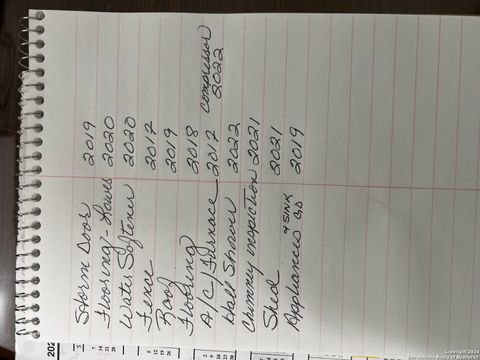 Storm Door 2019
Flooring - 2020
Water Softener 2020
Fence 2017
Roof 2019
Flooring 2018
A/C/Furnace 2012 compressor 2022
Hall Shower 2022
Chimney inspection 2021
Shed 2021
Appliances + SINK GD 2019
202
Copyright 2024
San Antonio Board of Realtors®